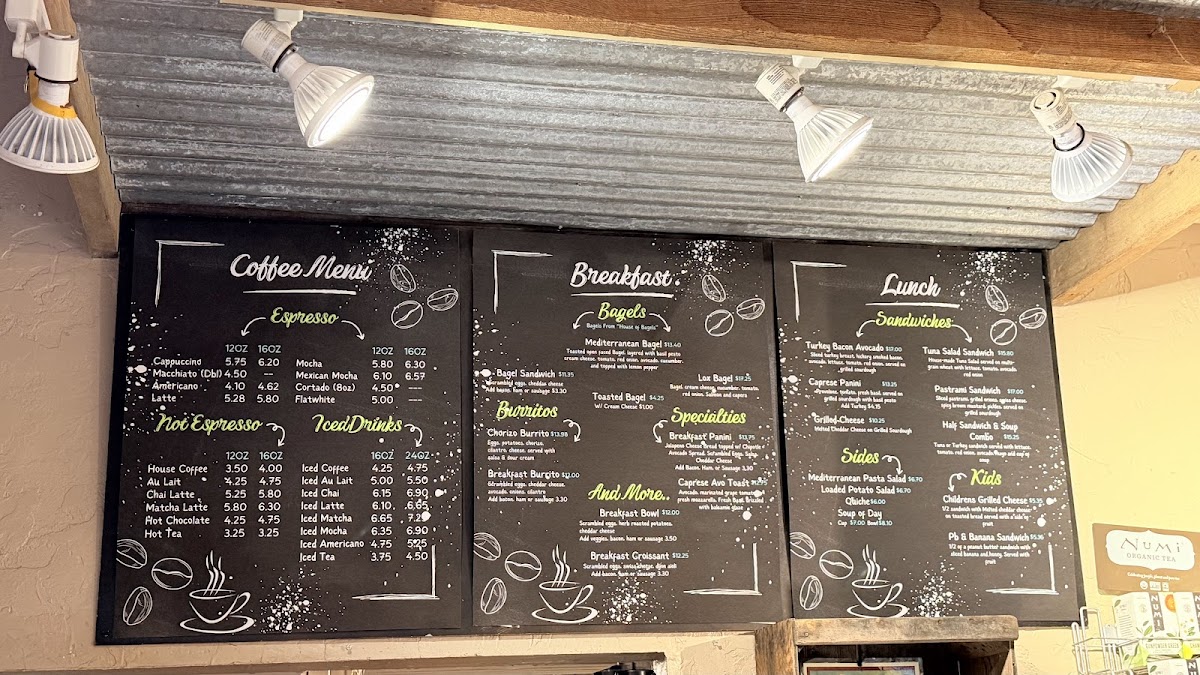 Coffee Menu
Espresso
12OZ 16OZ
Cappuccino 5.75 6.20
Macchiato (Dbl) 4.50 ---
Americano 4.10 4.62
Latte 5.28 5.80
12OZ 16OZ
Mocha 5.80 6.30
Mexican Mocha 6.10 6.57
Cortado (8oz) 4.50
Flatwhite 5.00 ---
Not Espresso
12OZ 16OZ
House Coffee 3.50 4.00
Au Lait 4.25 4.75
Chai Latte 5.25 5.80
Matcha Latte 5.80 6.30
Hot Chocolate 4.25 4.75
Hot Tea 3.25 3.25
Iced Drinks
16OZ 24OZ
Iced Coffee 4.25 4.75
Iced Au Lait 5.00 5.50
Iced Chai 6.15 6.90
Iced Latte 6.10 6.65
Iced Matcha 6.65 7.25
Iced Mocha 6.35 6.90
Iced Americano 4.75 5.25
Iced Tea 3.75 4.50
Breakfast
Bagels
Bagels From "House of Bagels"
Mediterranean Bagel $13.40
Toasted open faced Bagel, layered with basil pesto
cream cheese, tomato, red onion, avocado, cucumber,
and topped with lemon pepper
Bagel Sandwich $11.35
Scrambled eggs, cheddar cheese
Add bacon, ham or sausage $3.30
Lox Bagel $17.25
Bagel, cream cheese, cucumber, tomato,
red onion, Salmon and capers
Toasted Bagel $4.25
W/ Cream Cheese $1.00
Burritos
Chorizo Burrito $13.98
Eggs, potatoes, chorizo,
cilantro, cheese, served with
salsa & sour cream
Breakfast Burrito $12.00
Scrambled eggs, cheddar cheese,
avocado, onions, cilantro
Add bacon, ham or sausage 3.30
Specialties
Breakfast Panini $13.75
Jalapeno Cheese bread topped w/ Chipotle
Avocado Spread, Scrambled Eggs, Salsa,
Cheddar Cheese
Add Bacon, Ham, or Sausage 3.30
Caprese Avo Toast
Avocado, marinated grape tomato
fresh mozzarella, Fresh basil, drizzled
with balsamic glaze
And More..
Breakfast Bowl $12.00
Scrambled eggs, herb roasted potatoes,
cheddar cheese
Add veggies, bacon, ham or sausage 3.50
Breakfast Croissant $12.25
Scrambled eggs, swiss cheese, dijon aioli
Add bacon, ham or sausage 3.30
Lunch
Sandwiches
Turkey Bacon Avocado $17.00
Sliced turkey breast, hickory smoked bacon,
avocado, lettuce, tomato, red onion, served on
grilled sourdough
Caprese Panini $13.25
Tomatoes, fresh basil served on
grilled sourdough with basil pesto
Add Turkey $4.15
Grilled Cheese $10.25
Melted Cheddar Cheese on Grilled Sourdough
Tuna Salad Sandwich $15.80
House-made Tuna Salad served on multi-
grain wheat with lettuce, tomato, avocado,
red onion
Pastrami Sandwich $17.00
Sliced pastrami, grilled onions, swiss cheese,
spicy brown mustard, pickles, served on
grilled sourdough
Half Sandwich & Soup
Combo $15.25
Tuna or Turkey sandwich served with lettuce,
tomato, red onion, avocado, mayo and cup of
soup
Sides
Mediterranean Pasta Salad $6.70
Loaded Potato Salad $6.70
Quiche $6.00
Soup of Day
Cup $7.00 Bowl $8.10
Kids
Childrens Grilled Cheese $5.35
1/2 sandwich with Melted cheddar cheese
on toasted bread served with a side of
fruit
Pb & Banana Sandwich $5.36
1/2 of a peanut butter sandwich with
sliced banana and honey. Served with
fruit
NUMI
ORGANIC TEA
NUMI